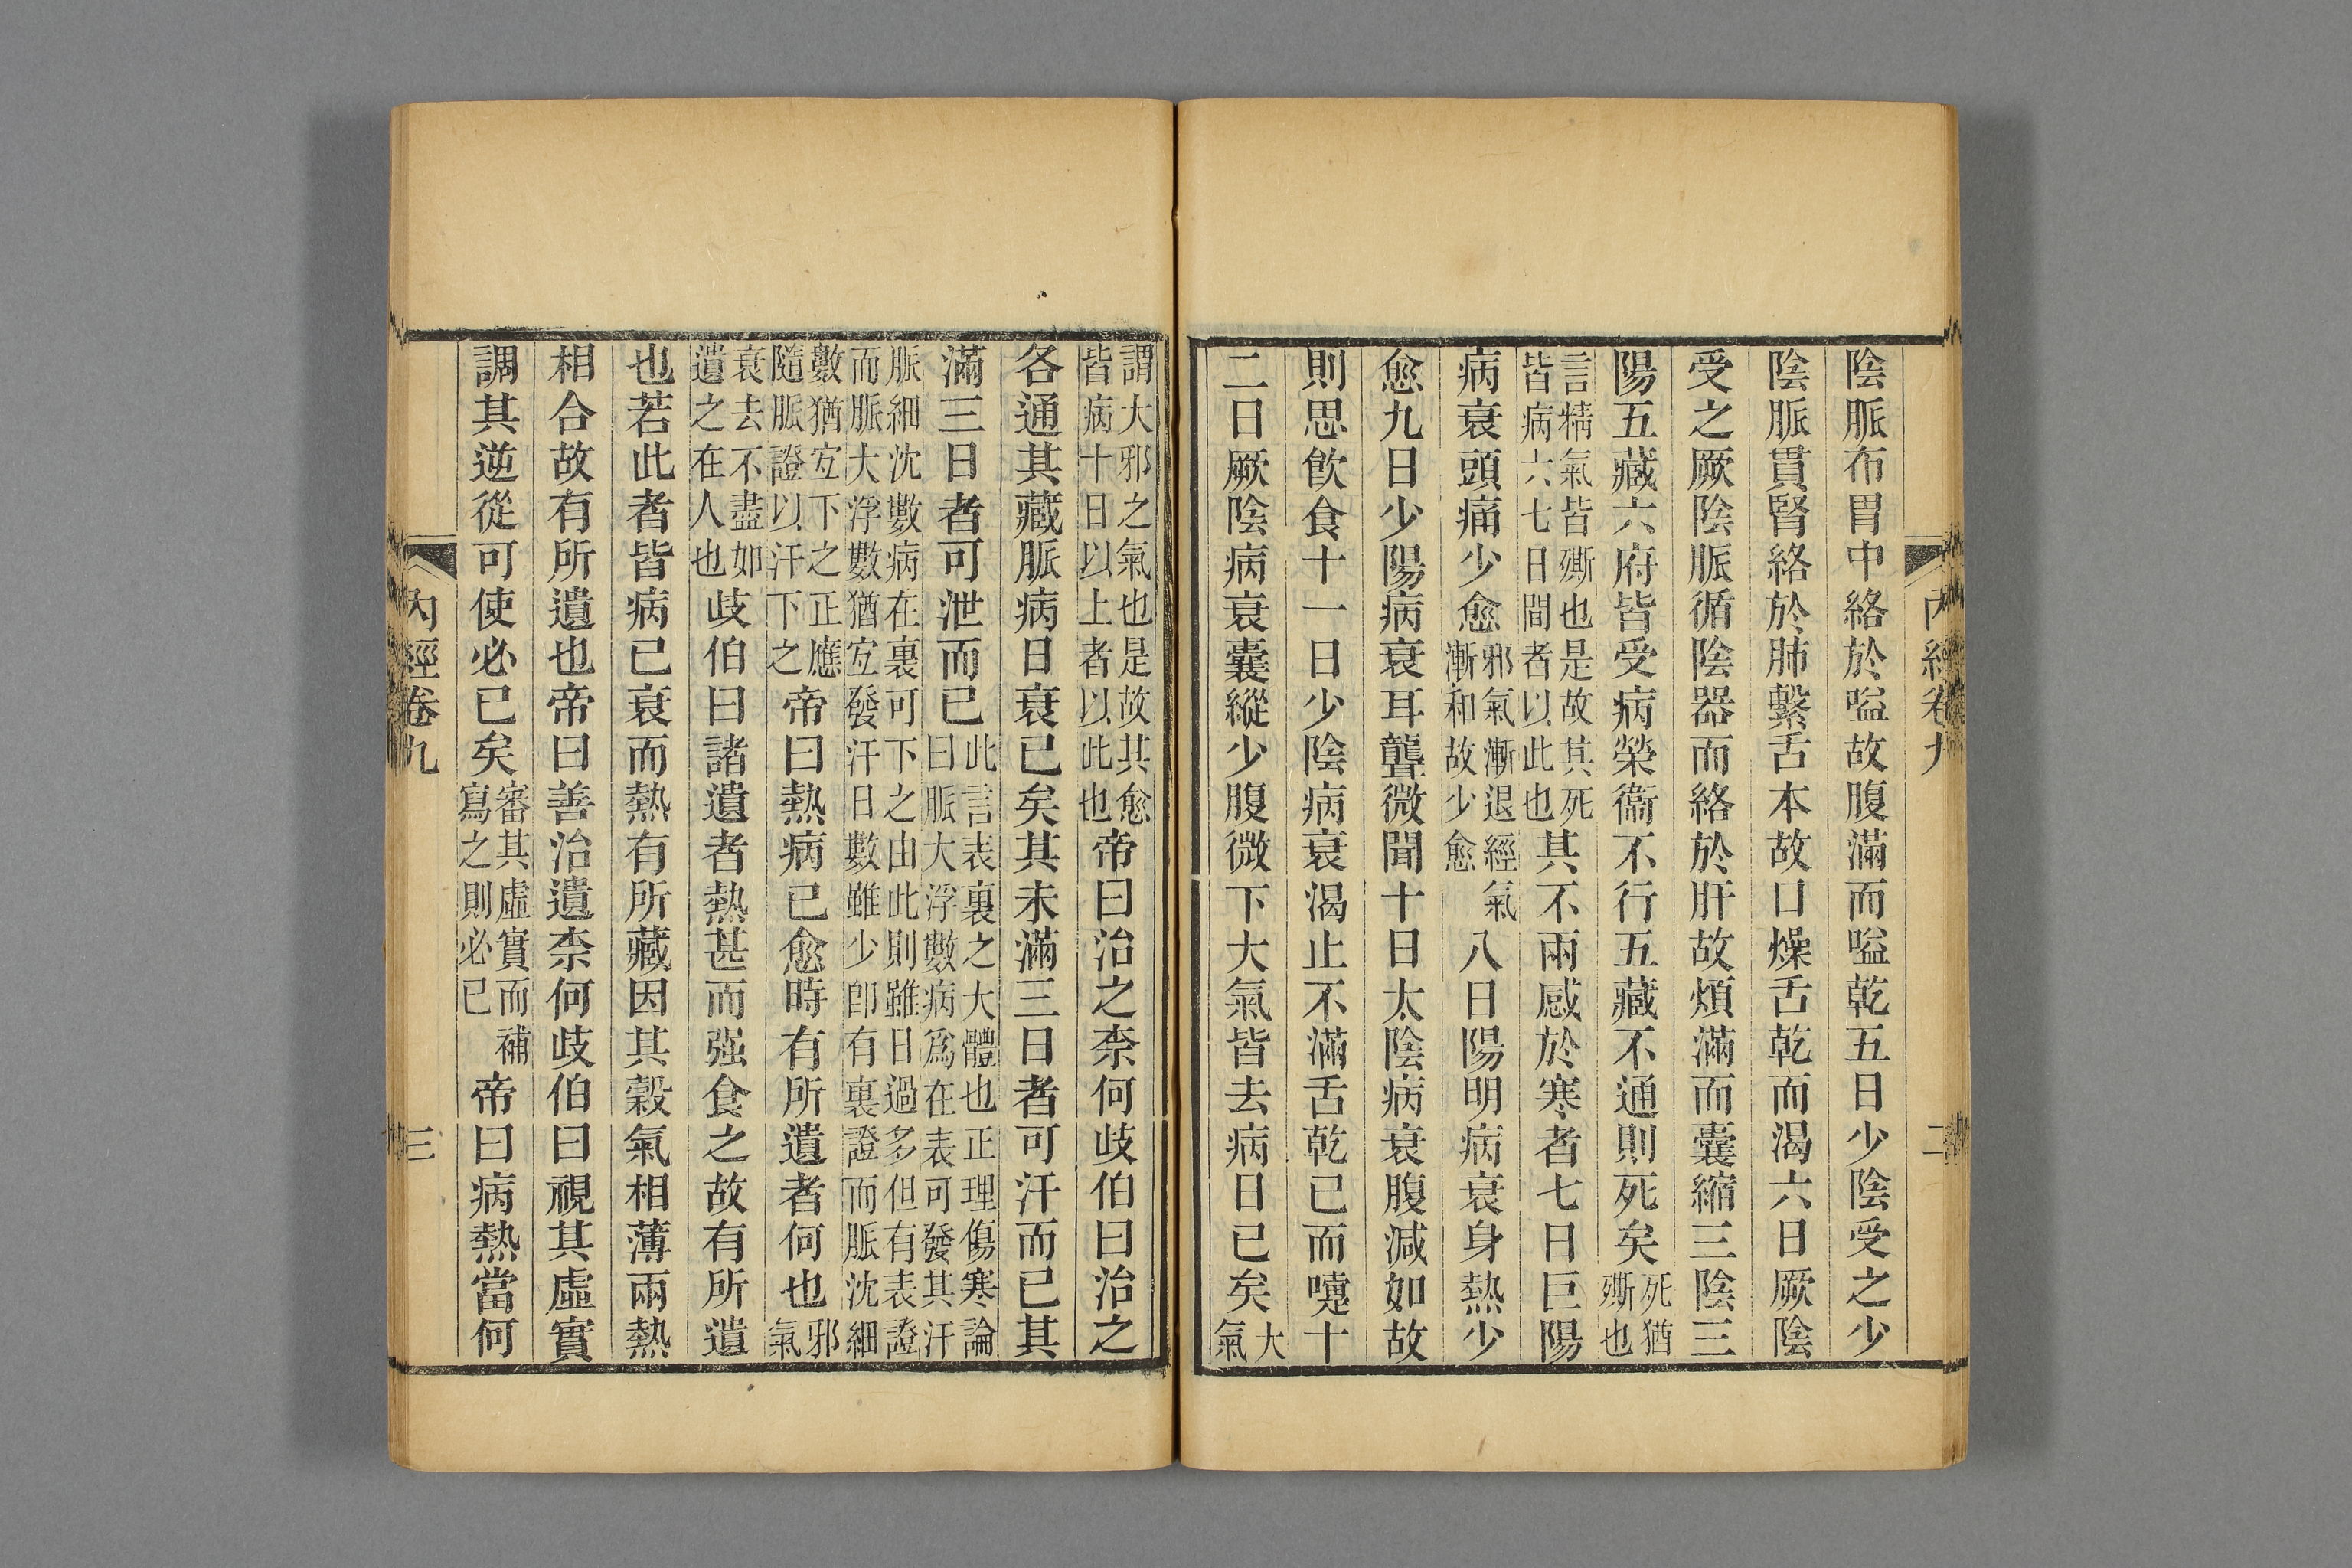 陰脈布胃中絡於嗌故腹滿而嗌乾五日少陰受之少
陰脈貫腎絡於肺繫舌本故口燥舌乾而渴六日厥陰
受之厥陰脈循陰器而絡於肝故煩滿而囊縮三陰三
陽五藏六府皆受病榮衞不行五藏不通則死矣死猶
㾷也
言精氣皆㾷也是故其死
皆病六七日間者以此也其不兩感於寒者七日巨陽
病衰頭痛少愈邪氣漸退經氣
漸和故少愈八日陽明病衰身熱少
愈九日少陽病衰耳聾微聞十日太陰病衰腹減如故
則思飲食十一日少陰病衰渴止不滿舌乾已而嚏十
二日厥陰病衰囊縱少腹微下大氣皆去病日已矣大
氣
內經卷九
二
謂大邪之氣也是故其愈
皆病十日以上者以此也帝曰治之柰何歧伯曰治之
各通其藏脈病日衰已矣其未滿三日者可汗而已其
滿三日者可泄而已此言表裏之大體也正理傷寒論
曰脈大浮數病為在表可發其汗
脈細沈數病在裏可下之由此則雖日過多但有表證
而脈大浮數猶宐發汗日數雖少卽有裏證而脈沈細
數猶宐下之正應
隨脈證以汗下之帝曰熱病已愈時有所遺者何也邪
氣
衰去不盡如
遺之在人也歧伯曰諸遺者熱甚而强食之故有所遺
也若此者皆病已衰而熱有所藏因其穀氣相薄兩熱
相合故有所遺也帝曰善治遺柰何歧伯曰視其虛實
調其逆從可使必已矣審其虛實而補
寫之則必已帝曰病熱當何
內經卷九
三